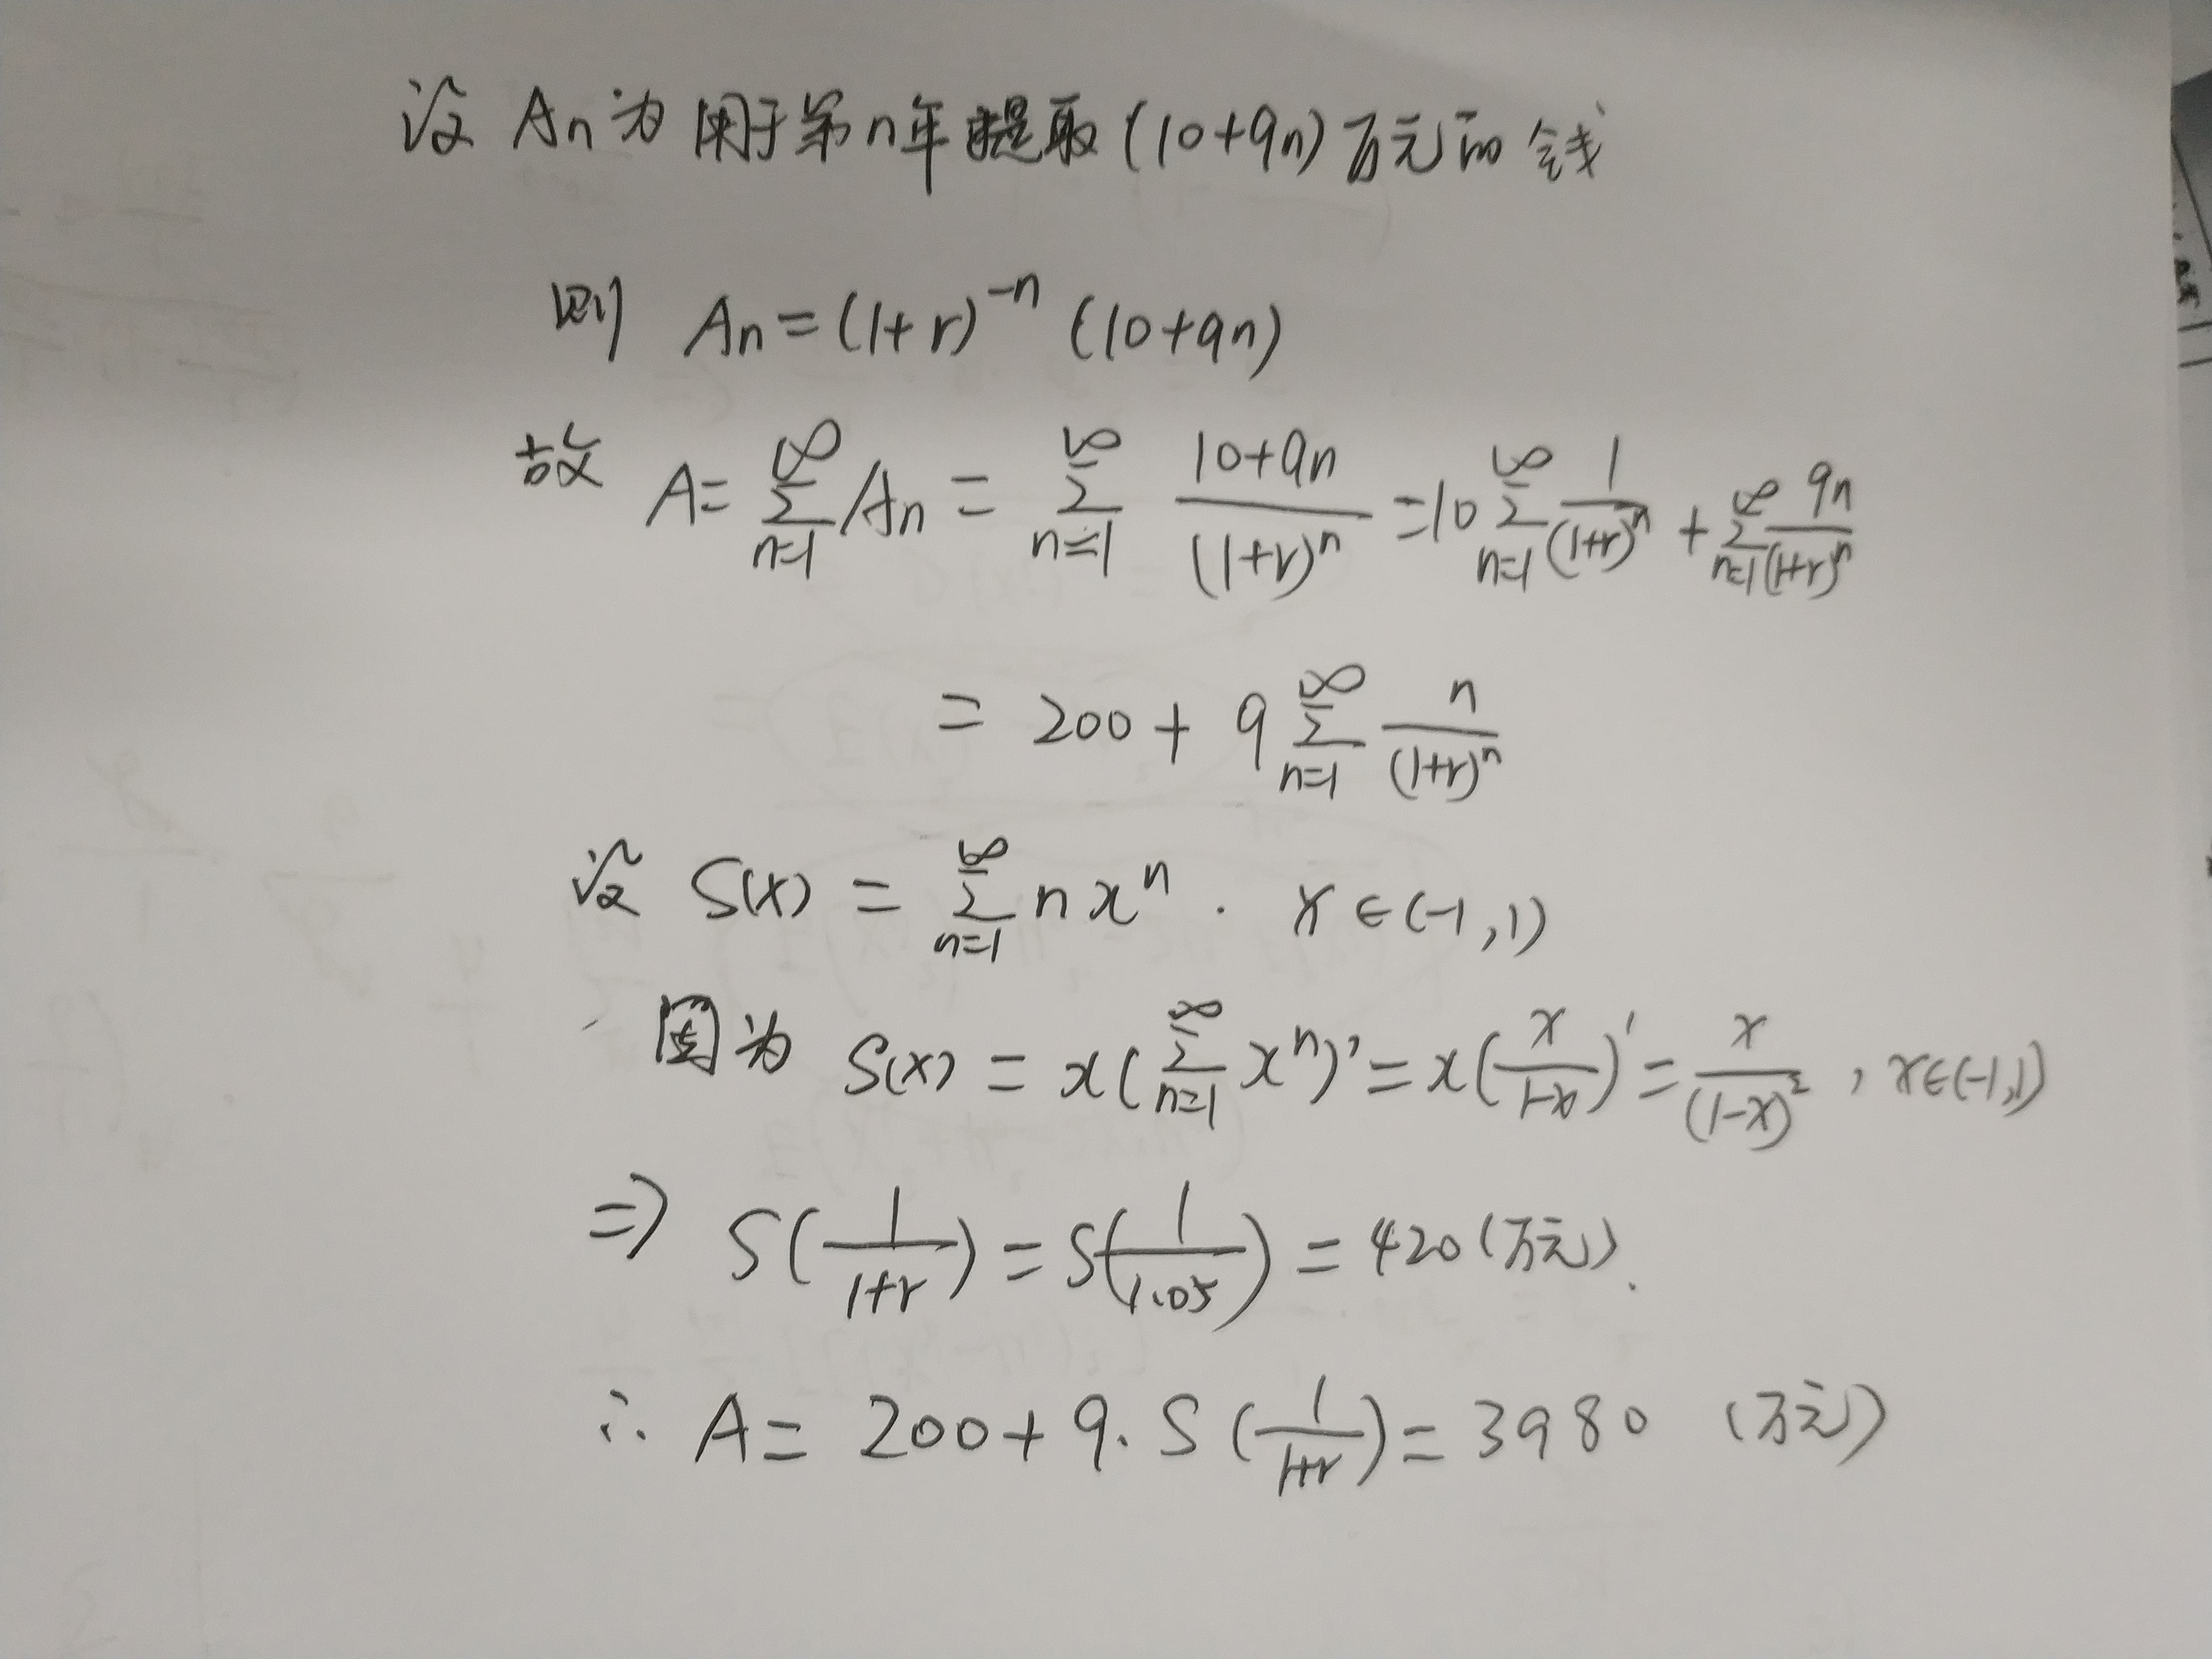 设 An为 用于第n年提取(10+9n)万元的钱
则 An=(1+r)^{-n} (10+9n)
故 A=\sum_{n=1}^{∞} An = \sum_{n=1}^{∞} \frac{10+9n}{(1+r)^n} =10\sum_{n=1}^{∞}\frac{1}{(1+r)^n} + \sum_{n=1}^{∞}\frac{9n}{(1+r)^n}
= 200 + 9\sum_{n=1}^{∞} \frac{n}{(1+r)^n}
设 S(x) = \sum_{n=1}^{∞} n x^n . x∈(-1,1)
因为 S(x) = x(\sum_{n=1}^{∞} x^n)' = x(\frac{x}{1-x})' = \frac{x}{(1-x)^2} , x∈(-1,1)
⇒ S(\frac{1}{1+r}) = S(\frac{1}{1.05}) = 420 (万元).
∴ A = 200 + 9. S(\frac{1}{1+r}) = 3980 (万元)